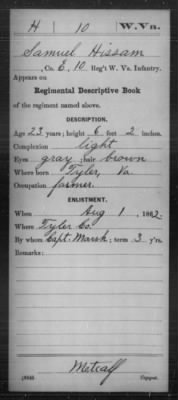 H 10 W. Va.
Samuel Hissam
, Co. E, 10 Reg't W. Va. Infantry.
Appears on
Regimental Descriptive Book
of the regiment named above.
DESCRIPTION.
Age 23 years; height 6 feet 2 inches.
Complexion light
Eyes gray; hair brown
Where born Tyler, Va.
Occupation farmer.
ENLISTMENT.
When Aug 1, 1862.
Where Tyler Co.
By whom Capt. Marsh; term 3 y'rs.
Remarks:
Metcalf
Copyist.